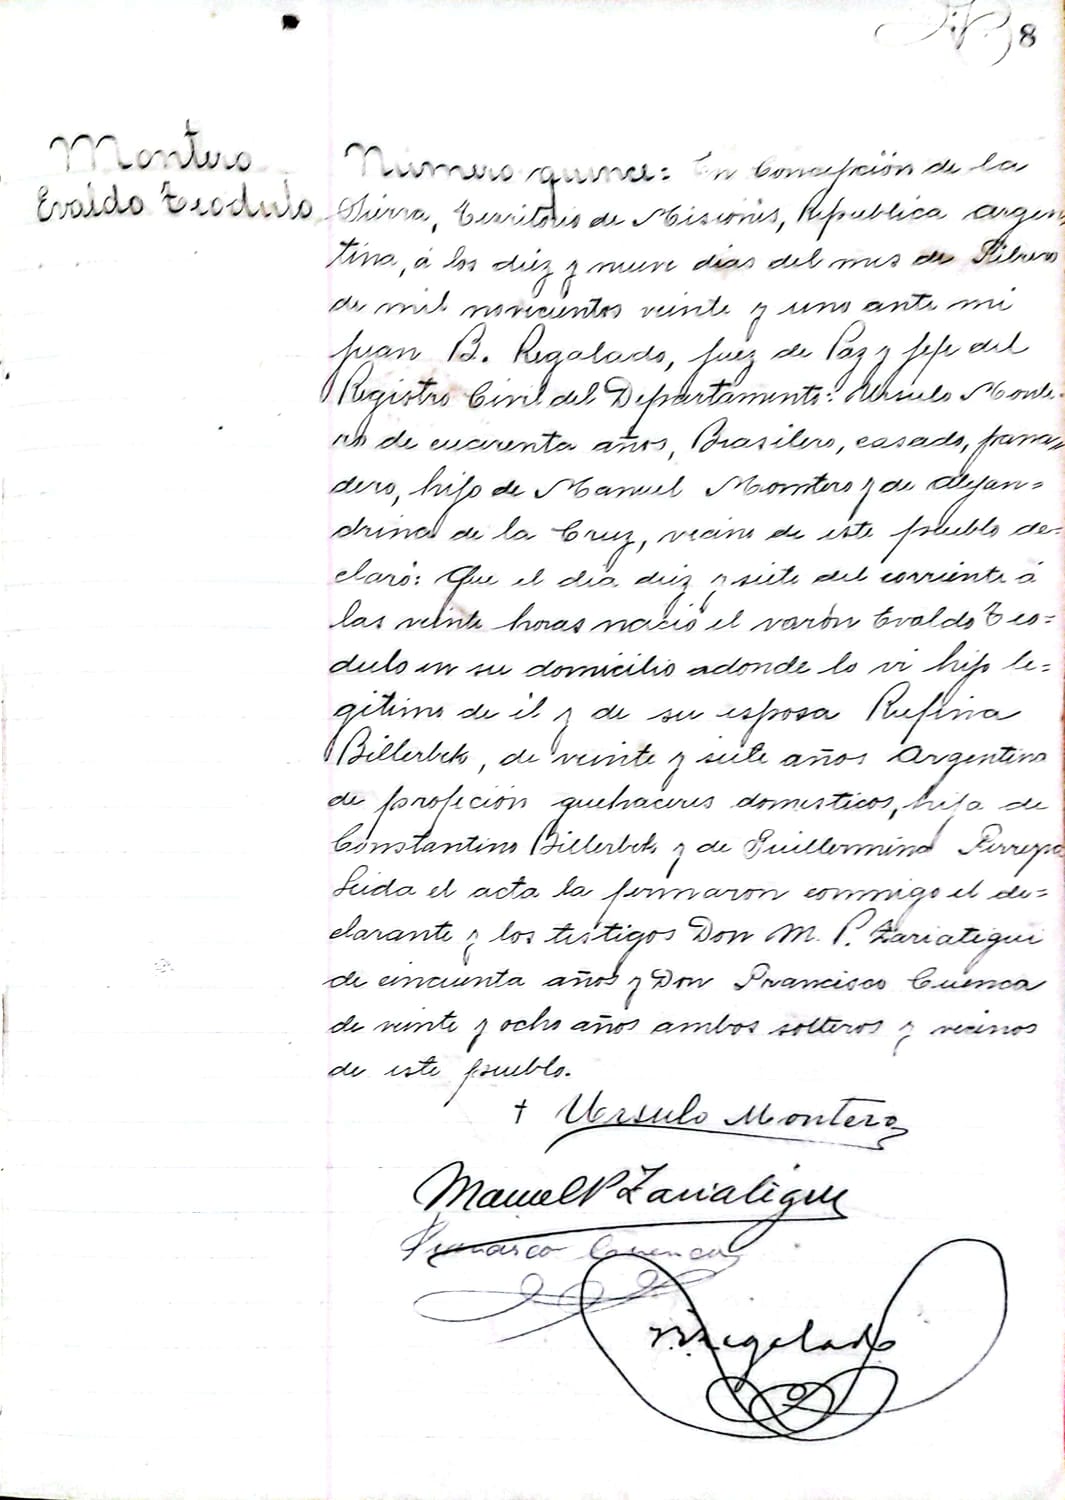 8
Montero
Evaldo Teodulo
Número quince: En Concepción de la
Sierra, Territorio de Misiones, Republica Argen-
tina, á los diez y nueve dias del mes de Febrero
de mil novecientos veinte y uno ante mi
Juan B. Regalado, Juez de Paz y Jefe del
Registro Civil del Departamento: Ursulo Monte-
ro de cuarenta años, Brasilero, casado, pana-
dero, hijo de Manuel Montero y de Alejan=
drina de la Cruz, vecino de este pueblo de=
claró: Que el dia diez y siete del corriente á
las veinte horas nació el varón Evaldo Teo=
dulo en su domicilio adonde lo vi hijo le=
gitimo de él y de su esposa Rufina
Billerbek, de veinte y siete años Argentina
de profeción quehaceres domesticos, hija de
Constantino Billerbek y de Guillermina
Leida el acta la firmaron conmigo el de=
clarante y los testigos Don M. P. Zariategui
de cincuenta años y Don Francisco Cuenca
de veinte y ocho años ambos solteros y vecinos
de este pueblo.
† Ursulo Montero
Manuel P Zariategui
Francisco Cuenca
Regalado